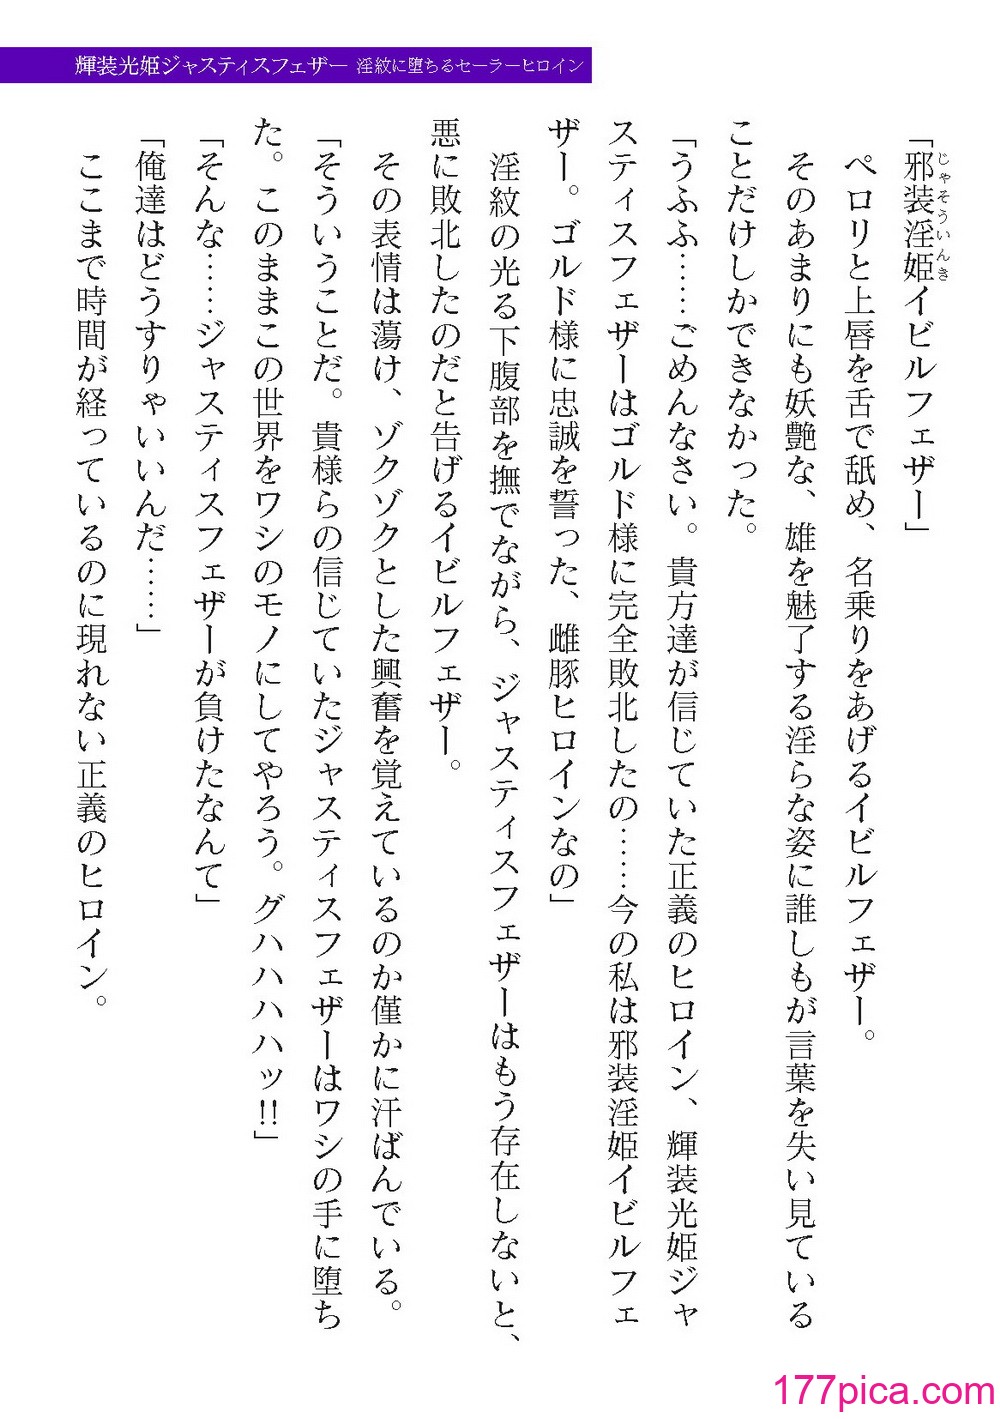 輝装光姫ジャスティスフェザー 淫紋に堕ちるセーラーヒロイン
「邪装淫姫イビルフェザー」
じゃそういんき
ペロリと上唇を舌で舐め、名乗りをあげるイビルフェザー。
そのあまりにも妖艶な、雄を魅了する淫らな姿に誰しもが言葉を失い見ている
ことだけしかできなかった。
「うふふ……ごめんなさい。貴方達が信じていた正義のヒロイン、輝装光姫ジャ
スティスフェザーはゴルド様に完全敗北したの……今の私は邪装淫姫イビルフェ
ザー。ゴルド様に忠誠を誓った、雌豚ヒロインなの」
淫紋の光る下腹部を撫でながら、ジャスティスフェザーはもう存在しないと、
悪に敗北したのだと告げるイビルフェザー。
その表情は蕩け、ゾクゾクとした興奮を覚えているのか僅かに汗ばんでいる。
「そういうことだ。貴様らの信じていたジャスティスフェザーはワシの手に堕ち
た。このままこの世界をワシのモノにしてやろう。グハハハハッ!!」
「そんな……ジャスティスフェザーが負けたなんて」
「俺達はどうすりゃいいんだ……」
ここまで時間が経っているのに現れない正義のヒロイン。
177pica.com